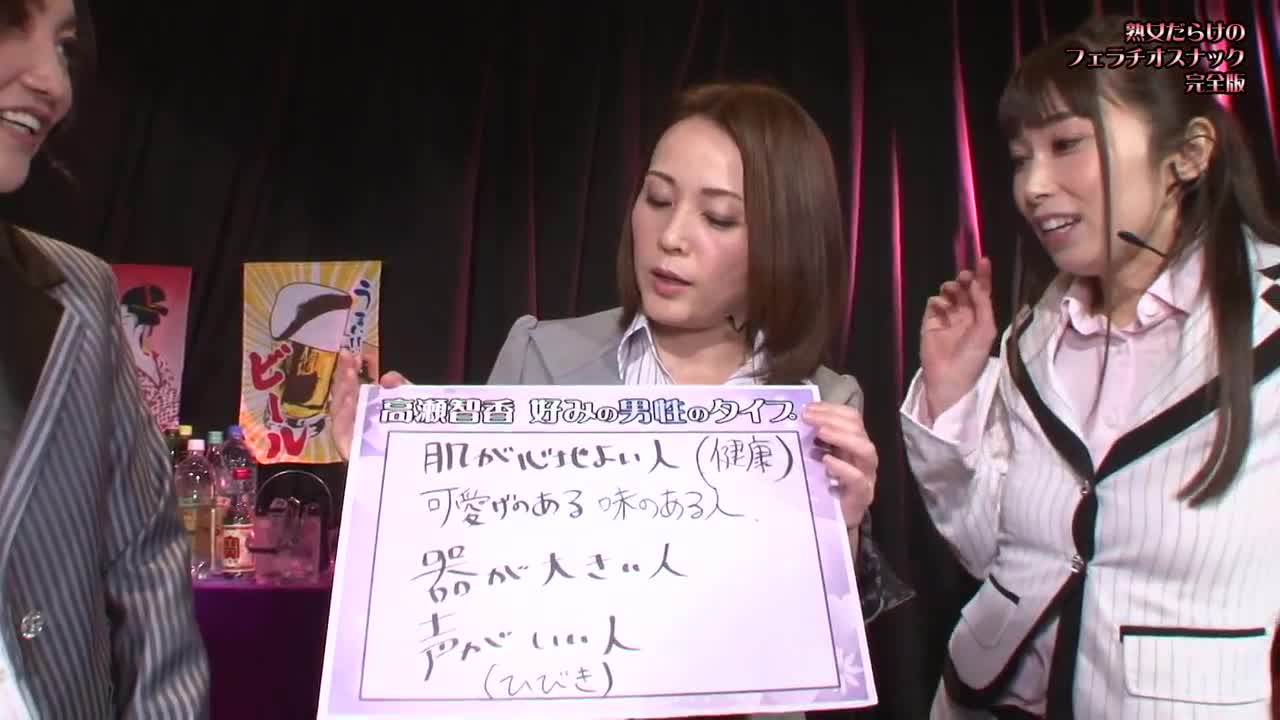 熟女だらけの
フェラチオスナック
完全版
うまい!!
ビール
高瀬智香 好みの男性のタイプ
肌が心地よい人(健康)
可愛げのある 味のある人
器が大きい人
声がいい人
(ひびき)